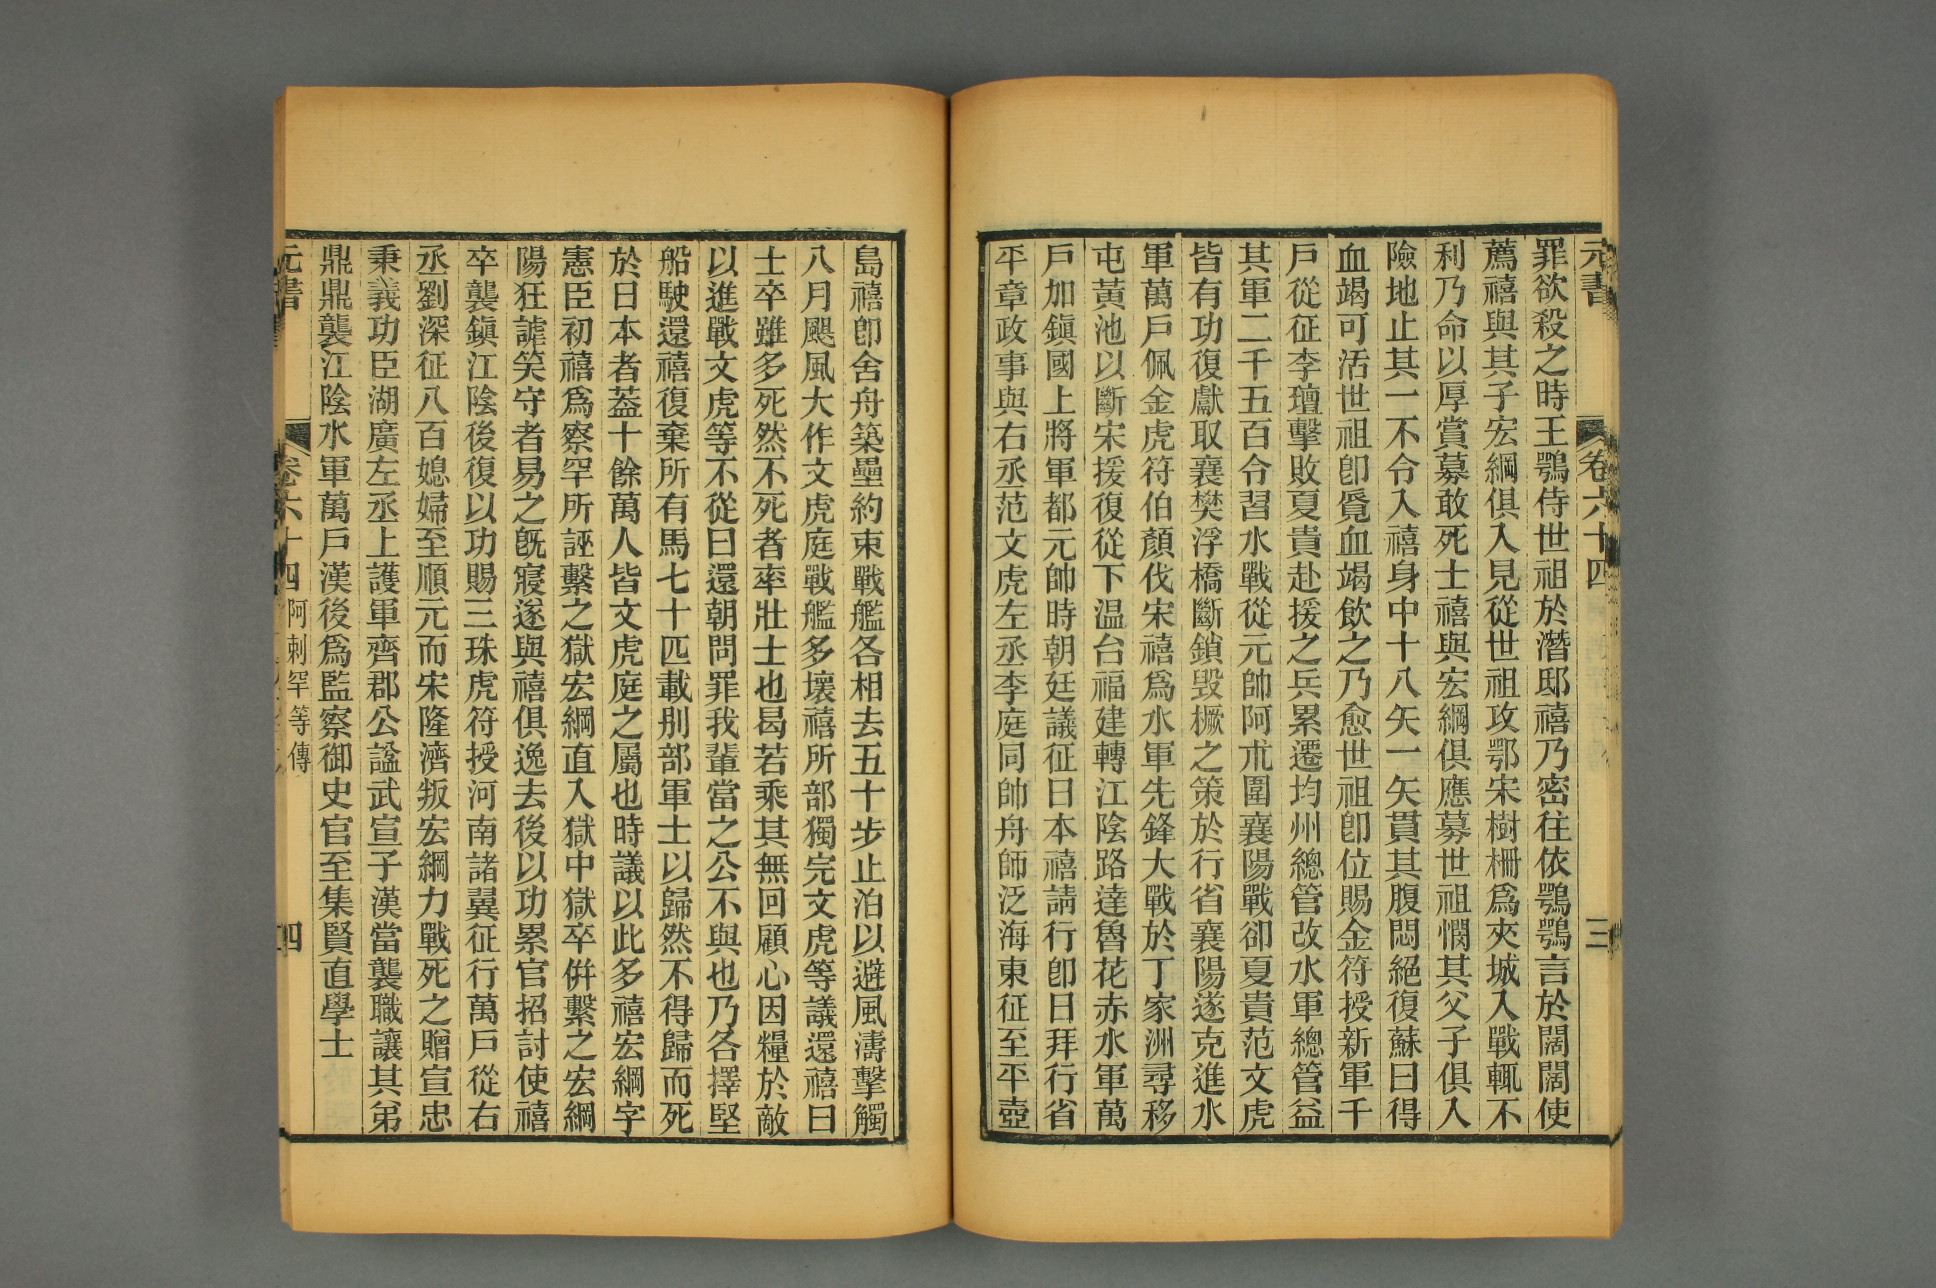 元書
卷六十四
三
罪欲殺之時王鶚侍世祖於潛邸禧乃密往依鶚鶚言於闊闊使
薦禧與其子宏綱俱入見從世祖攻鄂宋樹柵爲夾城入戰輒不
利乃命以厚賞募敢死士禧與宏綱俱應募世祖憫其父子俱入
險地止其一不令入禧身中十八矢一矢貫其腹悶絕復蘇曰得
血竭可活世祖卽覓血竭飲之乃愈世祖卽位賜金符授新軍千
戶從征李璮擊敗夏貴赴援之兵累遷均州總管改水軍總管益
其軍二千五百令習水戰從元帥阿朮圍襄陽戰卻夏貴范文虎
皆有功復獻取襄樊浮橋斷鎖毁橛之策於行省襄陽遂克進水
軍萬戶佩金虎符伯顏伐宋禧爲水軍先鋒大戰於丁家洲尋移
屯黃池以斷宋援復從下温台福建轉江陰路達魯花赤水軍萬
戶加鎭國上將軍都元帥時朝廷議征日本禧請行卽日拜行省
平章政事與右丞范文虎左丞李庭同帥舟師泛海東征至平壺
島禧卽舍舟築壘約束戰艦各相去五十步止泊以避風濤擊觸
八月颶風大作文虎庭戰艦多壞禧所部獨完文虎等議還禧曰
士卒雖多死然不死者率壯士也曷若乘其無回顧心因糧於敵
以進戰文虎等不從曰還朝問罪我輩當之公不與也乃各擇堅
船駛還禧復棄所有馬七十匹載别部軍士以歸然不得歸而死
於日本者葢十餘萬人皆文虎庭之屬也時議以此多禧宏綱字
憲臣初禧爲察罕所誣繫之獄宏綱直入獄中獄卒倂繫之宏綱
陽狂謔笑守者易之旣寢遂與禧俱逸去後以功累官招討使禧
卒襲鎭江陰後復以功賜三珠虎符授河南諸翼征行萬戶從右
丞劉深征八百媳婦至順元而宋隆濟叛宏綱力戰死之贈宣忠
秉義功臣湖廣左丞上護軍齊郡公諡武宣子漢當襲職讓其弟
鼎鼎襲江陰水軍萬戶漢後爲監察御史官至集賢直學士
元書
卷六十四
阿剌罕等傳
四